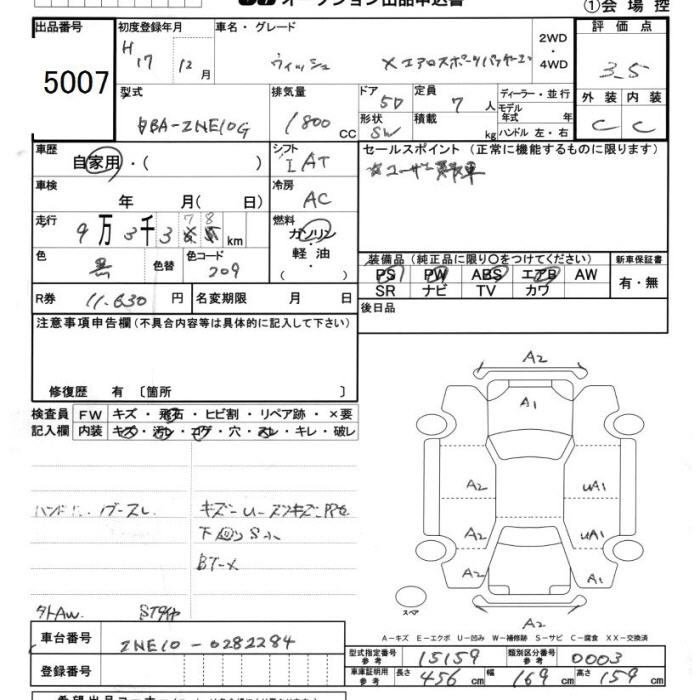 オークション出品申込書
①会場控
出品番号 初度登録年月 車名・グレード 2WD・4WD 評価点
5007 H 17 12月 ウィッシュ X エアロスポーツパッケージ 3.5
型式 排気量 ドア 5D 定員 7人 ディーラー・並行 外装 内装
DBA-ZNE10G 1800 CC 形状 SW 積載 kg モデル年式 年式 ハンドル 左・右 C C
車歴 自家用・( ) シフト I AT セールスポイント (正常に機能するものに限ります)
車検 年 月( 日) 冷房 AC ☆ユーザー買取車
走行 9万3千3 78 km 燃料 ガソリン・軽油・( )
色 黒 色替 色コード 209 装備品 (純正品に限り○をつけてください) 新車保証書
PS PW ABS エアB AW 有・無
SR ナビ TV カワ
R券 11,630円 名変期限 月 日 後日品
注意事項申告欄 (不具合内容等は具体的に記入して下さい)
修復歴 有 〔箇所 〕
検査員 FW キズ・飛石・ヒビ割・リペア跡・×要
記入欄 内装 キズ・汚レ・コゲ・穴・スレ・キレ・破レ
A2
A1
A2 UA1
A2 UA1
A2 A1
A2
スペア
下回りSハ
外AW
A-キズ E-エクボ U-凹み W-補修跡 S-サビ C-腐食 XX-交換済
車台番号 ZNE10-0282284
型式指定番号 参考 15159 類別区分番号 参考 0003
登録番号 車庫証明用 参考 長さ 456cm 幅 169cm 高さ 159cm